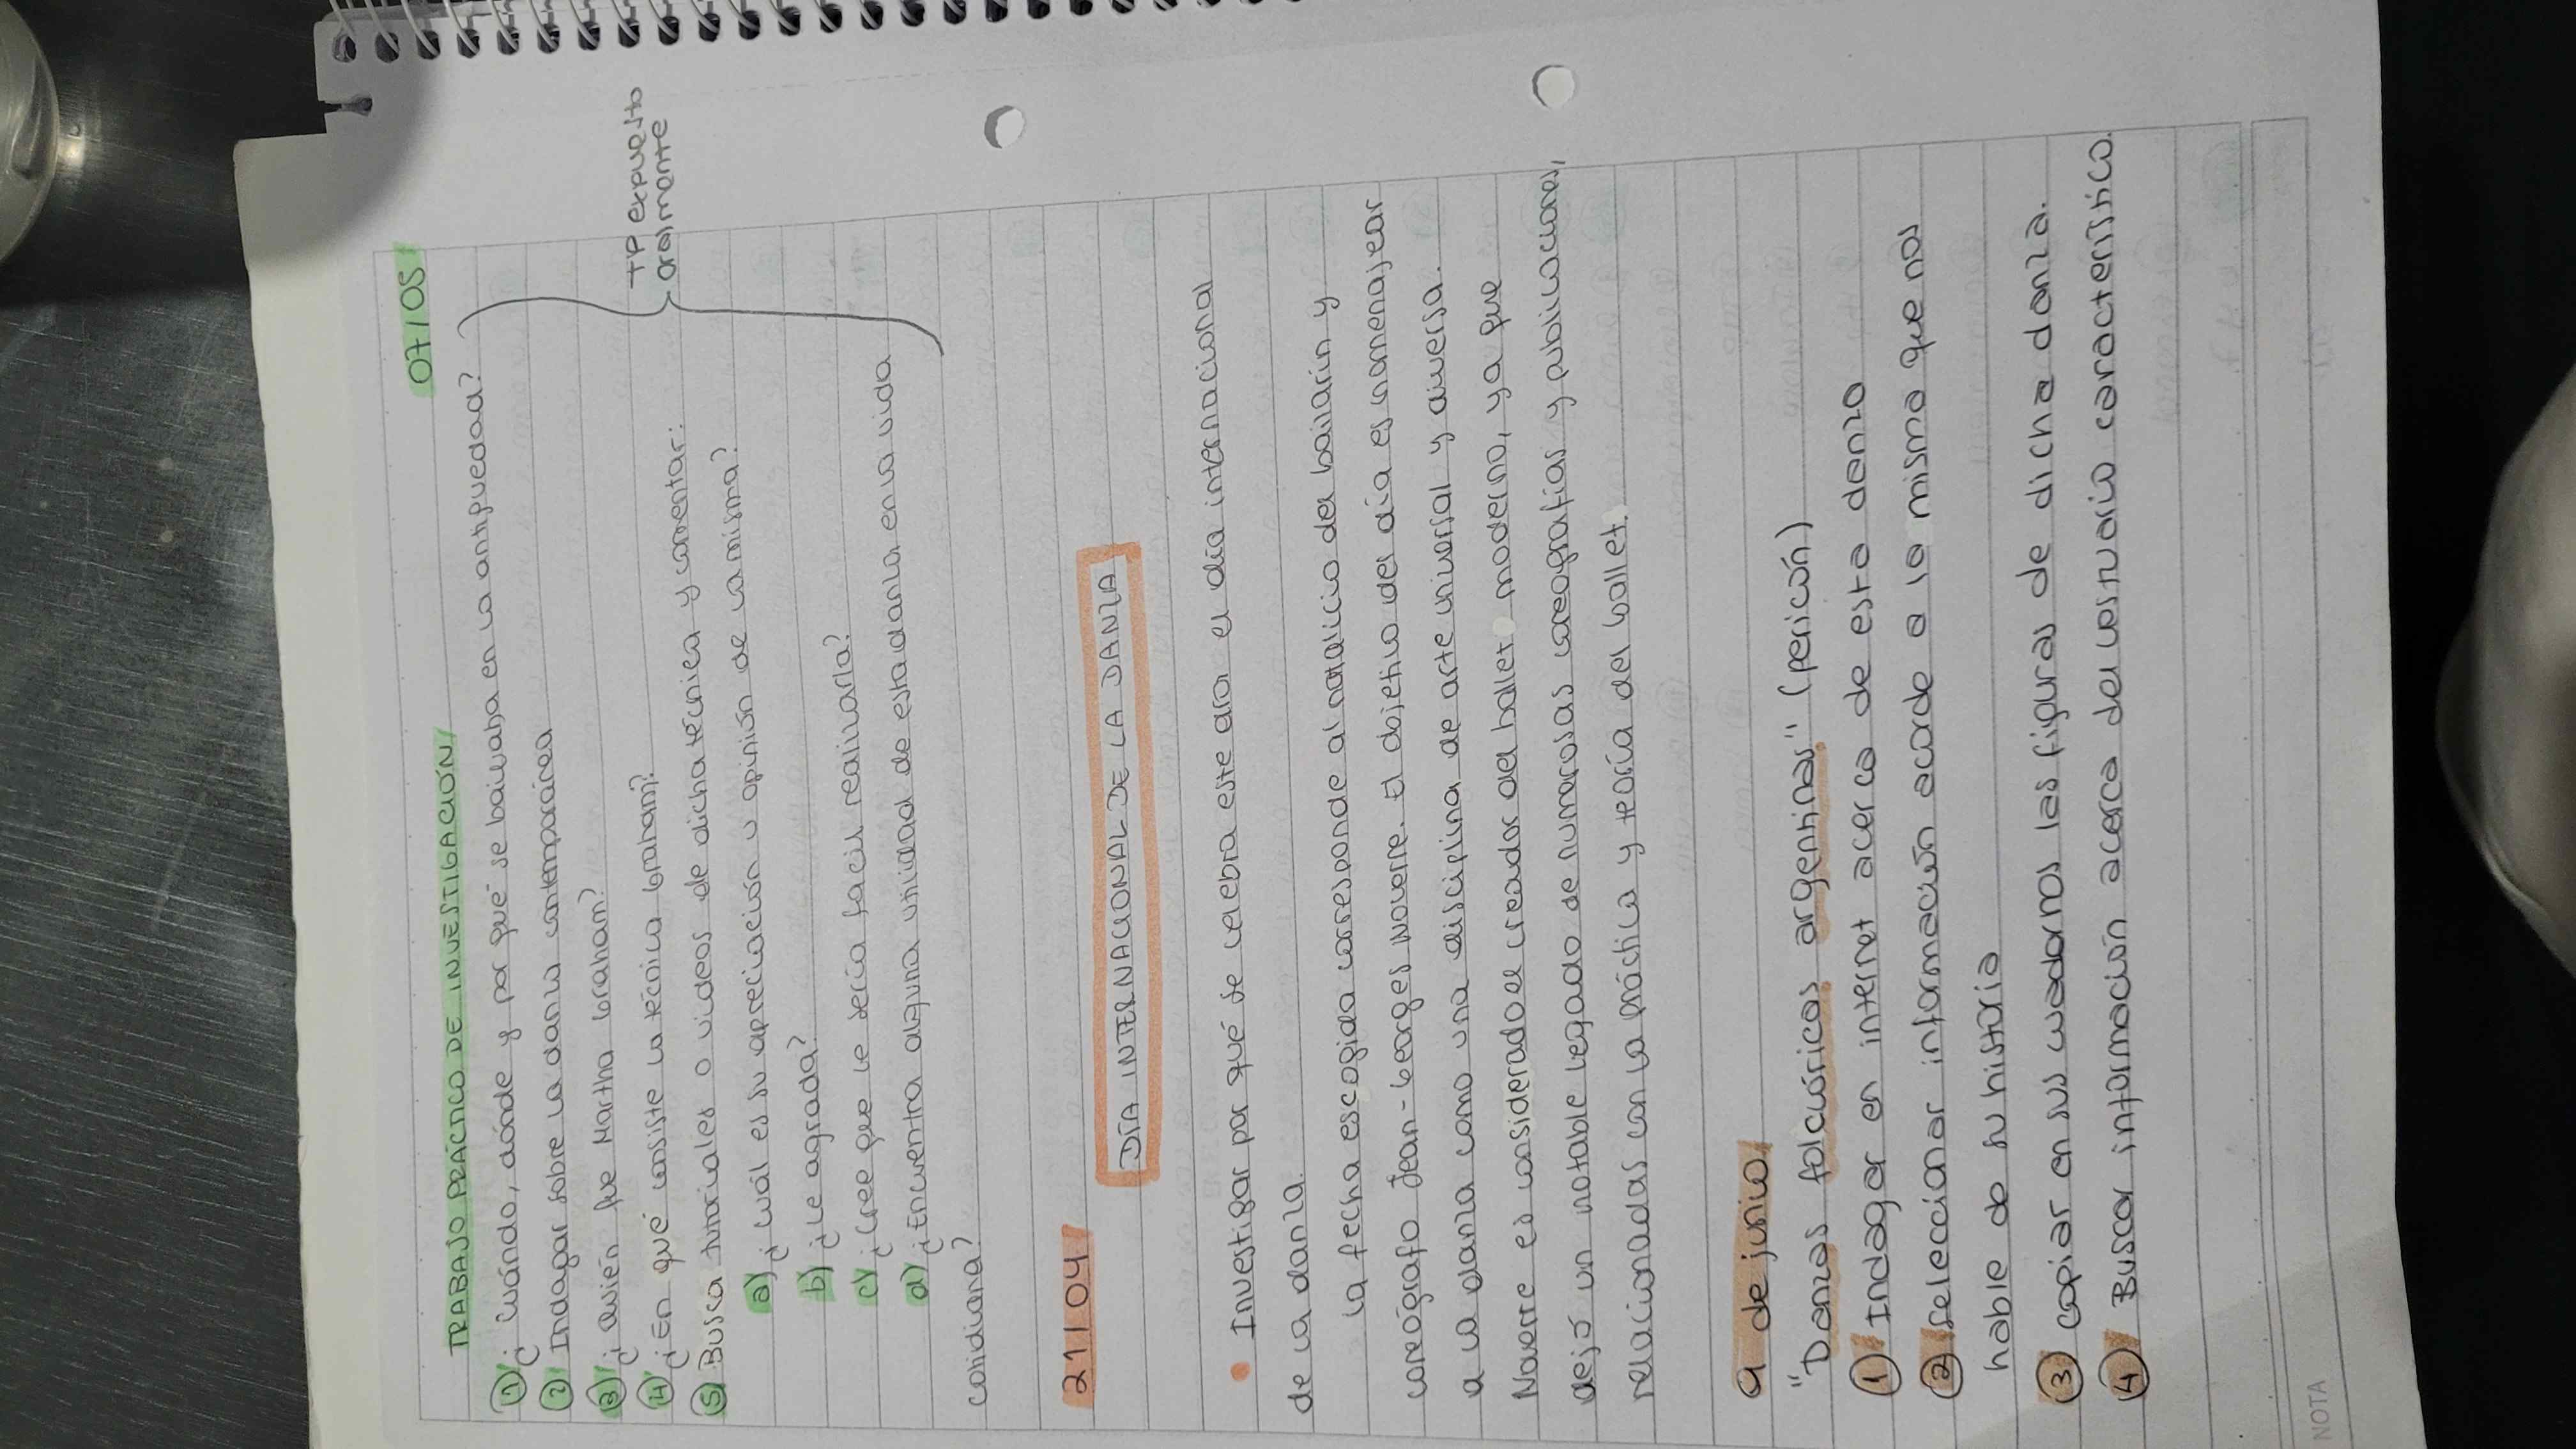 07/05
TRABAJO PRÁCTICO DE INVESTIGACIÓN
① ¿Cuándo, dónde y por qué se bailaba en la antigüedad?
② Indagar sobre la danza contemporánea
③ ¿Quién fue Martha Graham?
④ ¿En qué consiste la técnica Graham?
⑤ Busca tutoriales o videos de dicha técnica y comentar:
a) ¿Cuál es su apreciación u opinión de la misma?
b) ¿Le agrada?
c) ¿Cree que le sería facil realizarla?
d) ¿Encuentra alguna utilidad de esta danza en la vida
cotidiana?
TP expuesto
oralmente
21/04
DÍA INTERNACIONAL DE LA DANZA
• Investigar por qué se celebra este día el día internacional
de la danza.
La fecha escogida corresponde al natalicio del bailarín y
coreógrafo Jean-Georges Noverre. El objetivo del día es homenajear
a la danza como una disciplina de arte universal y diversa.
Noverre es considerado el creador del ballet moderno, ya que
dejó un notable legado de numerosas coreografías y publicaciones,
relacionadas con la práctica y teoría del ballet.
9 de junio
"Danzas folclóricas argentinas" (pericón)
① Indagar en internet acerca de esta danza
② Seleccionar información acorde a la misma que nos
hable de su historia
③ Copiar en sus cuadernos las figuras de dicha danza.
④ Buscar información acerca del vestuario característico.
NOTA